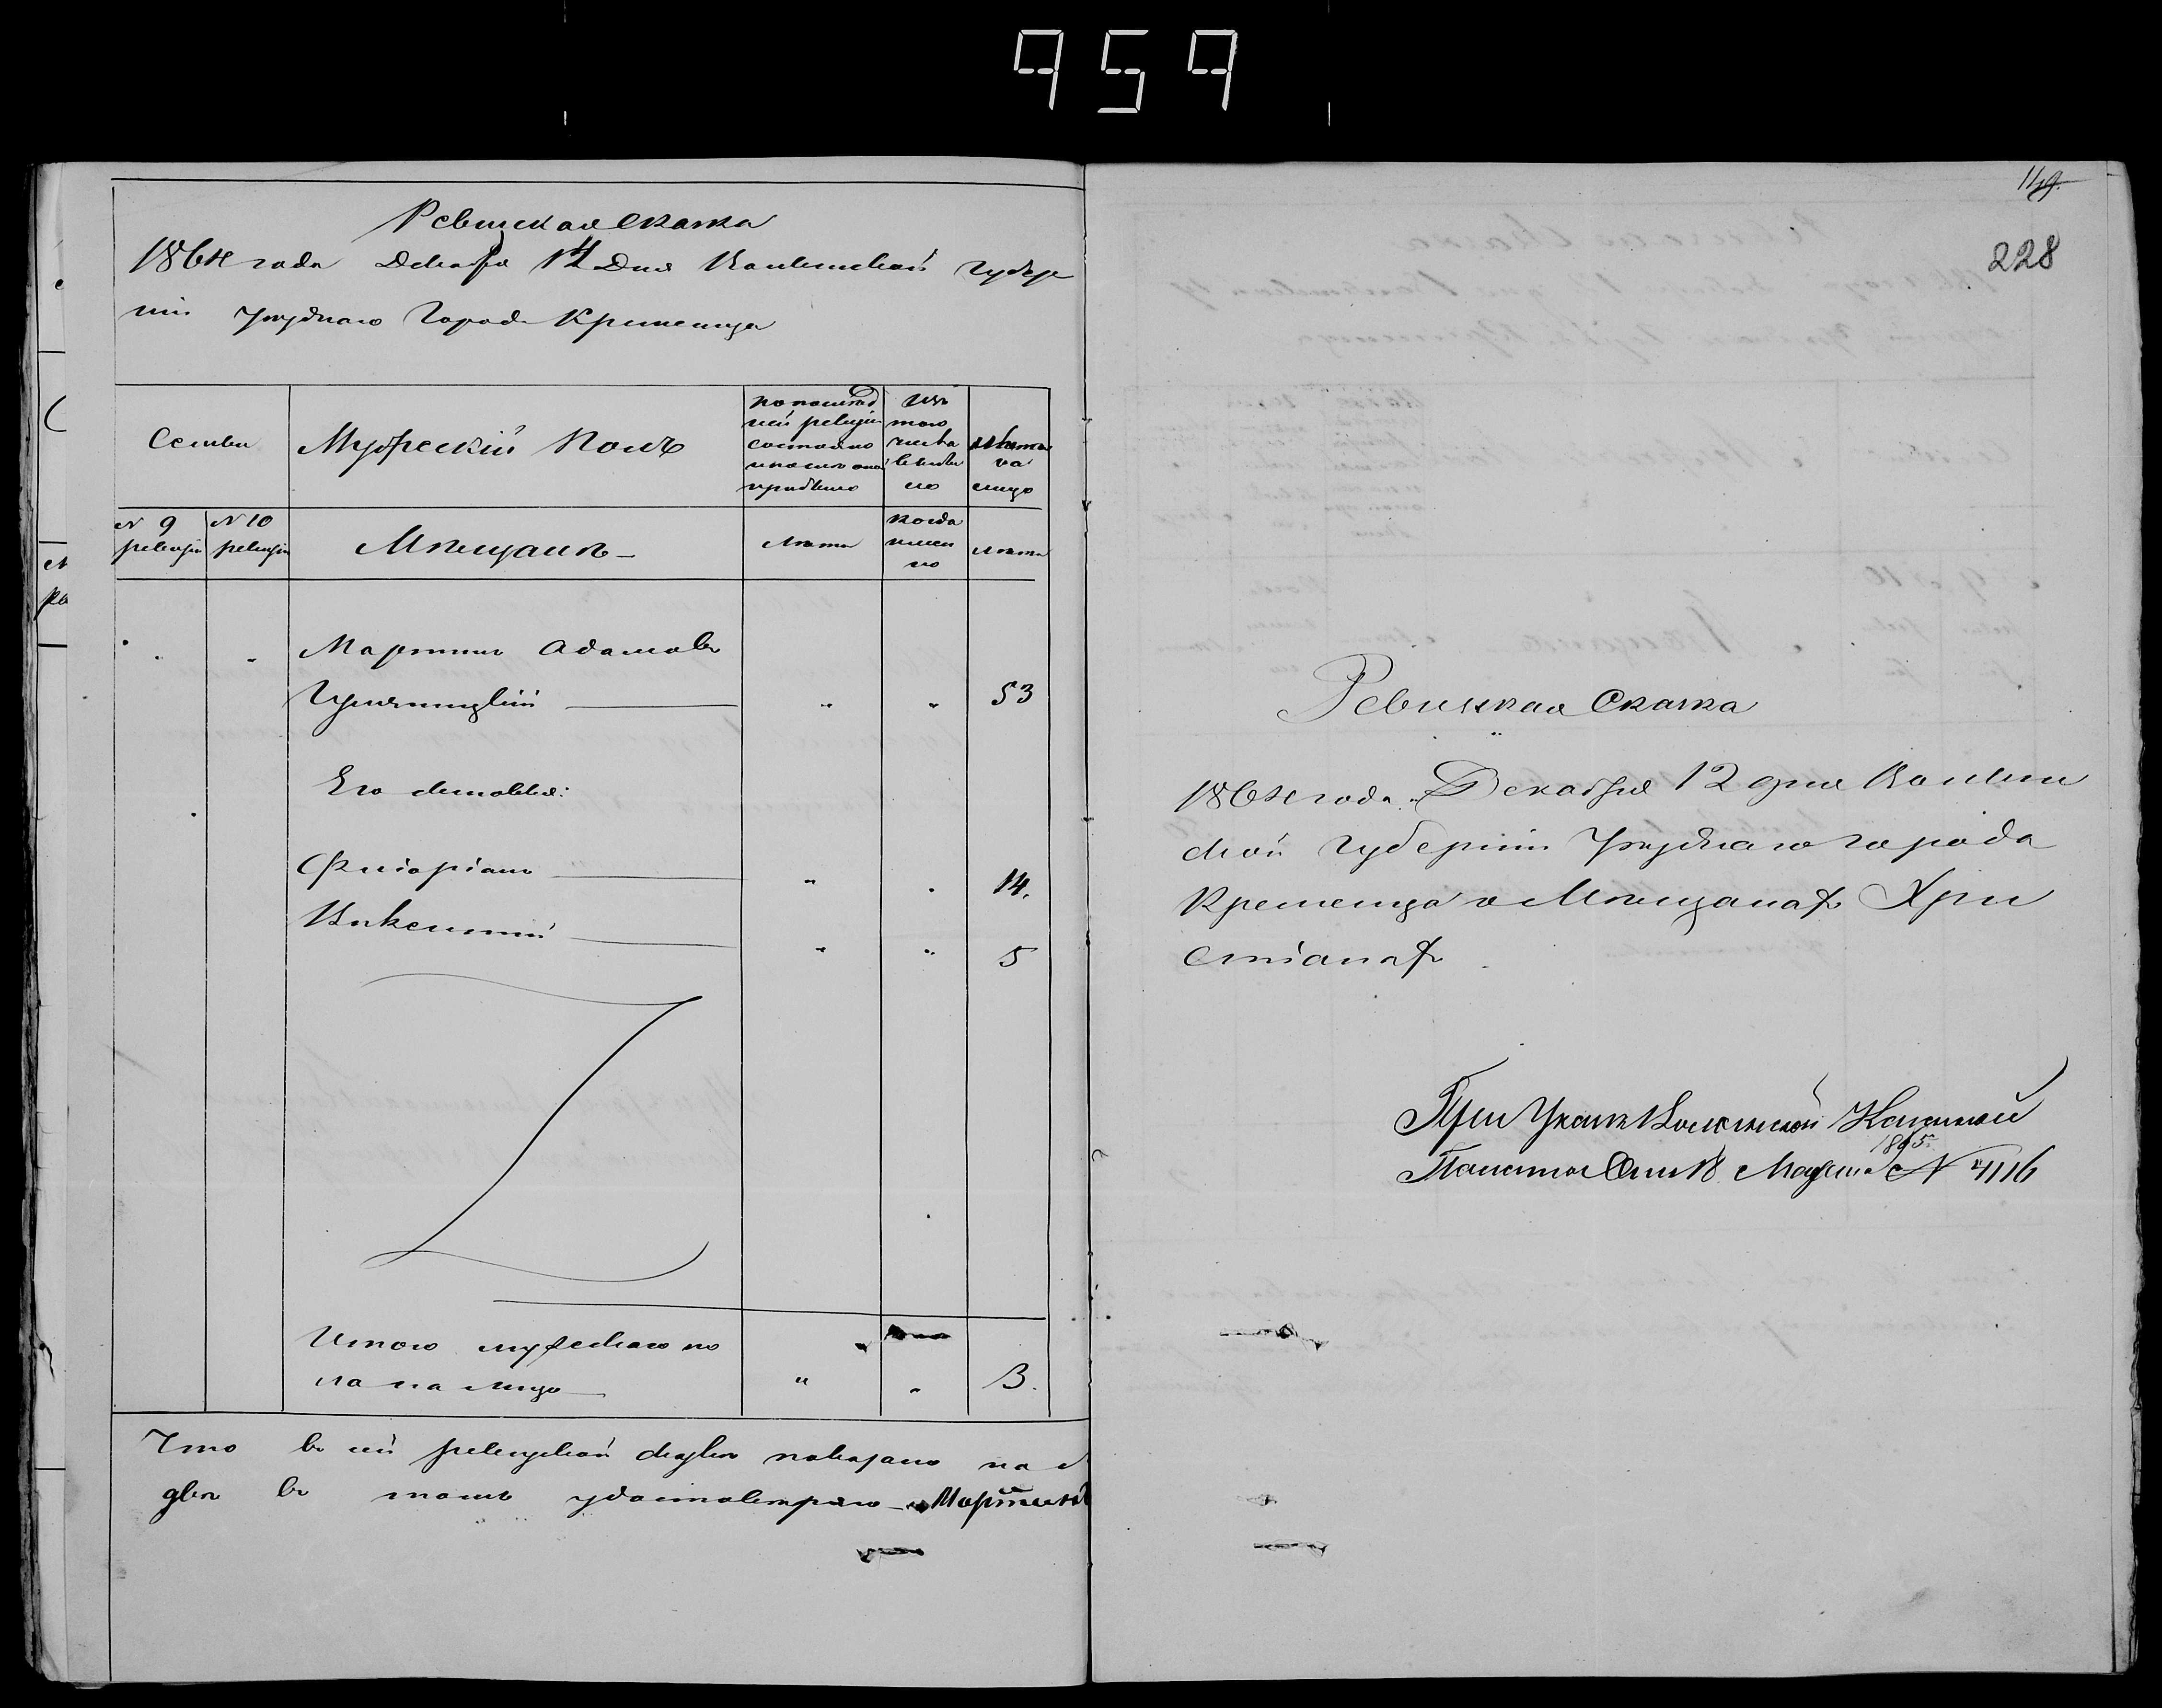 959
Ревизская Сказка
1864 года Декабря 12 Дня Волынской Губер
ніи Уезднаго Города Кременца
Семьи
Мужескій Полъ
по послед
ней ревизіи
состояло
и после оной
прибыло
Изъ
того
числа
выбы
ло
Ныне на
лицо
№ 9
ревизіи
№ 10
ревизіи
Мещанъ
Лета
когда
имен
но
Лета
" " Мартинъ Адамовъ
" " 53
Его сыновья:
Флоріанъ " " 14.
Викентій " " 5
Итого мужескаго по
ла на лицо " " 3.
Что въ сей ревизской сказке показано
въ томъ удостоверяю
119.
228
Ревизская Сказка
1864 года Декабря 12 дня Волын
ской Губерніи Уезднаго города
Кременца о Мещанахъ Хри
стіанахъ
При Указе Волынской Казенной
Палаты Отъ 18 Марта 1865 № 4116